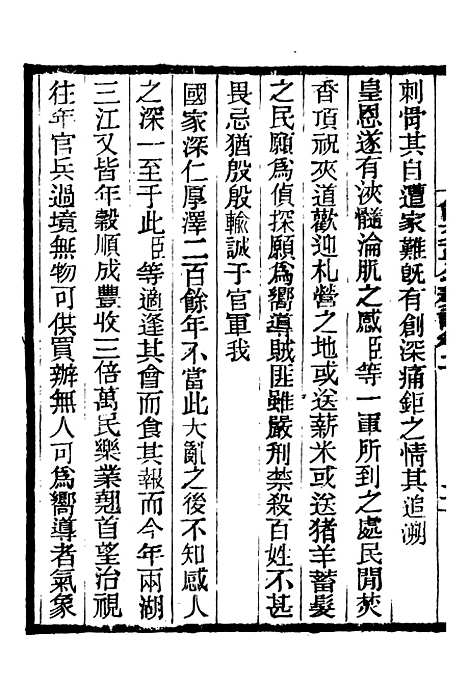 刺骨其自遭家難旣有創深痛鉅之情其追溯
皇恩遂有浹髓淪肌之感臣等一軍所到之處民閒焚
香頂祝夾道歡迎札營之地或送薪米或送猪羊蓄髮
之民願爲偵探願爲嚮導賊匪雖嚴刑禁殺百姓不甚
畏忌猶殷殷輸誠于官軍我
國家深仁厚澤二百餘年不當此大亂之後不知感人
之深一至于此臣等適逢其會而食其報而今年兩湖
三江又皆年穀順成豐收三倍萬民樂業翹首望治視
往年官兵過境無物可供買辦無人可爲嚮導者氣象